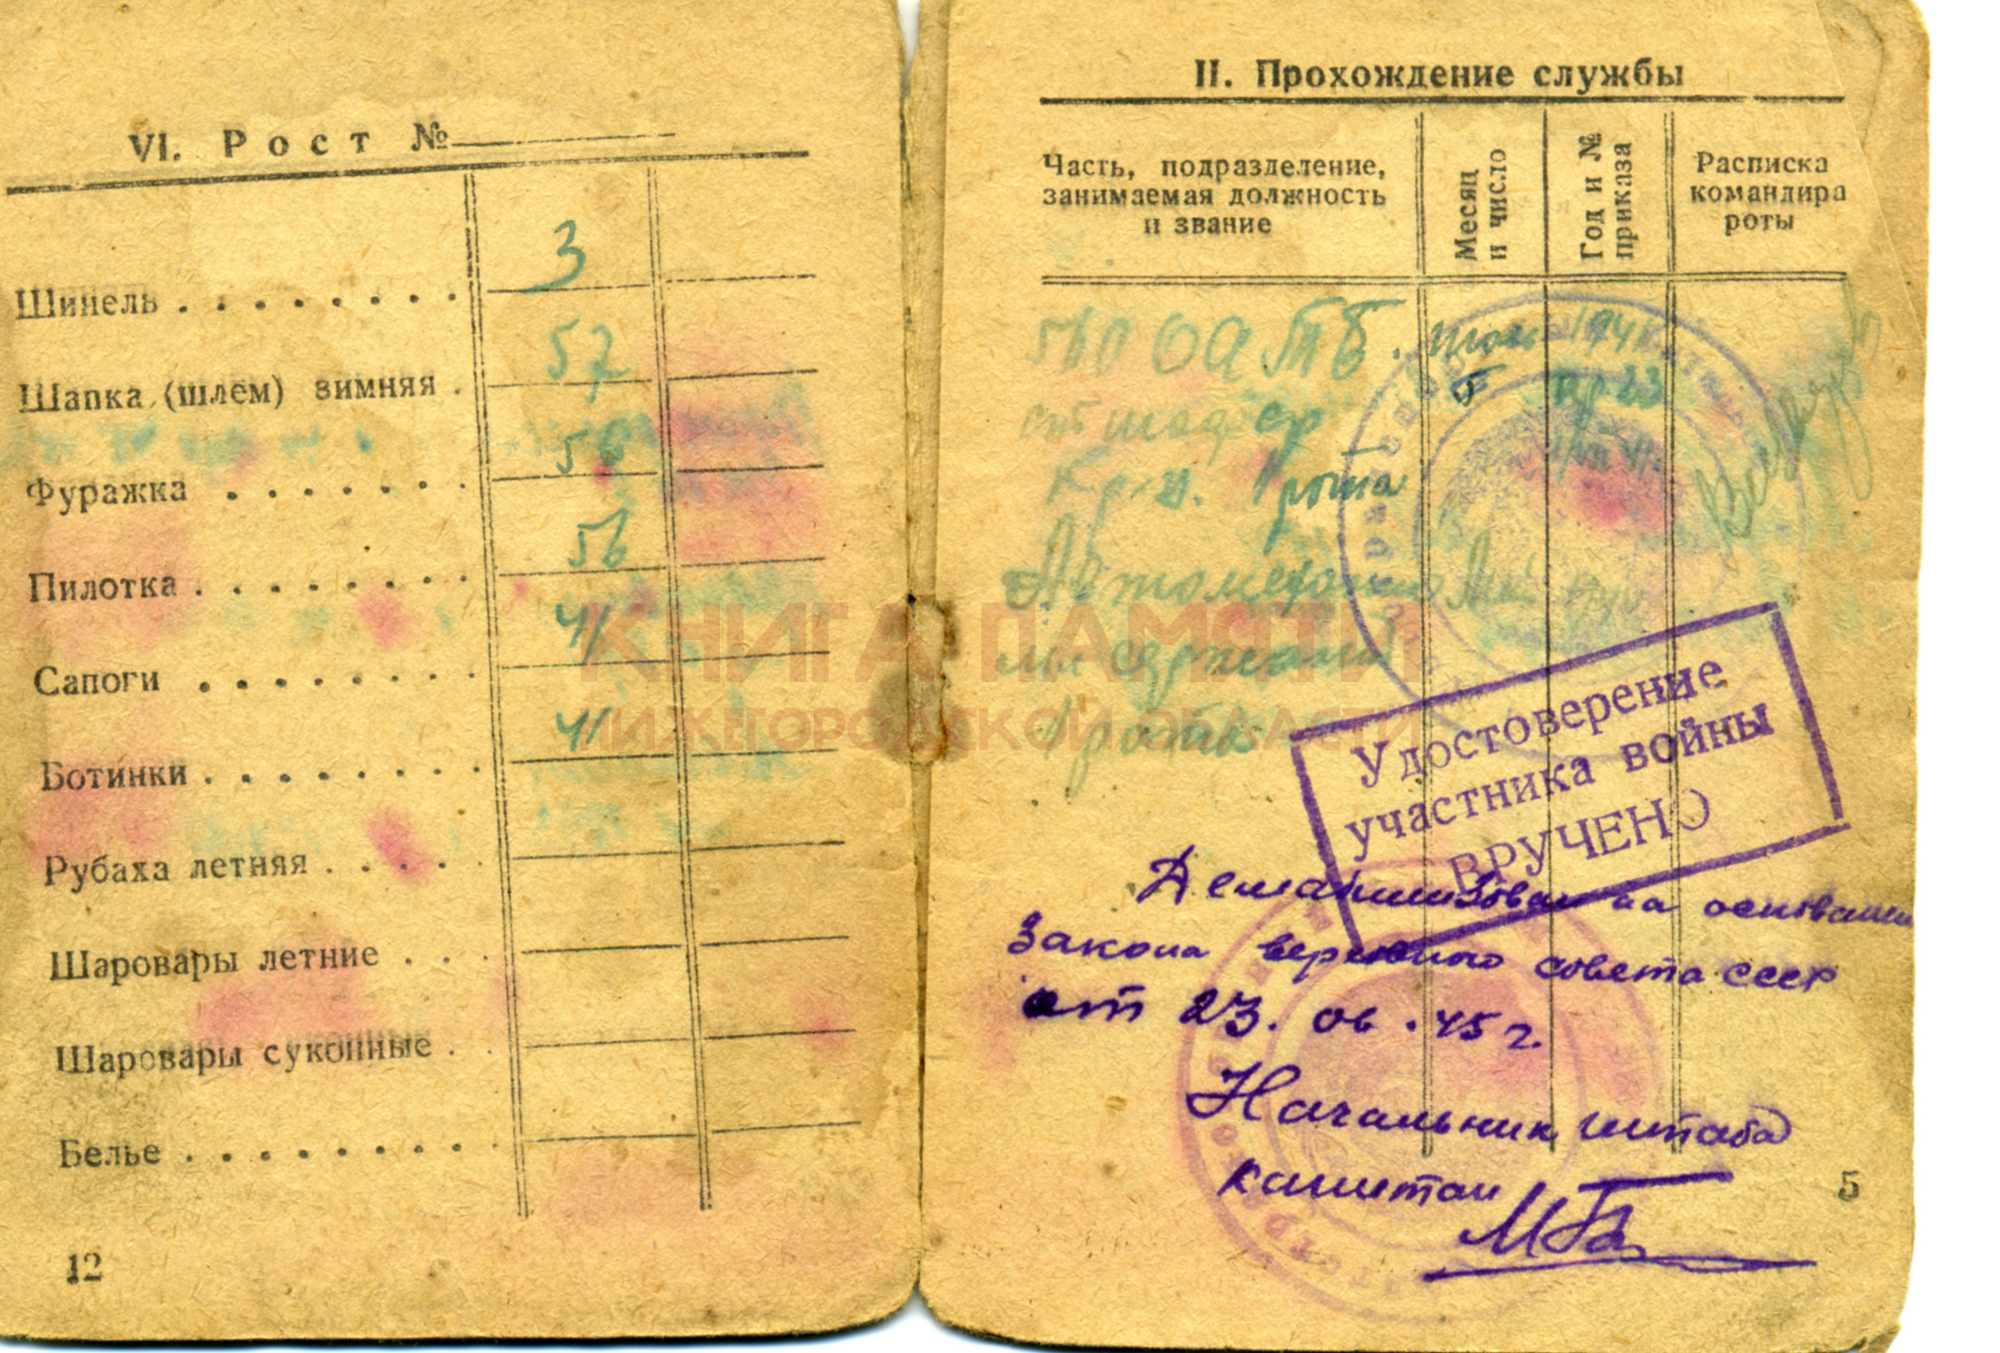 VI. Рост №
3
Шинель
57
Шапка (шлем) зимняя
56
Фуражка
56
Пилотка
41
Сапоги
41
Ботинки
Рубаха летняя
Шаровары летние
Шаровары суконные
Белье
12
II. Прохождение службы
Часть, подразделение, занимаемая должность и звание
Месяц и число
Год и № приказа
Расписка командира роты
ОАТБ. 1941
ст шофер
Кр-ц. 1 рота
Автомеханик
мл сержант
1 роты
Удостоверение
участника войны
ВРУЧЕНО
Демобилизован на основании
Закона верховного совета СССР
от 23.06.45 г.
Начальник штаба
капитан
5
КНИГА ПАМЯТИ
НИЖЕГОРОДСКОЙ ОБЛАСТИ